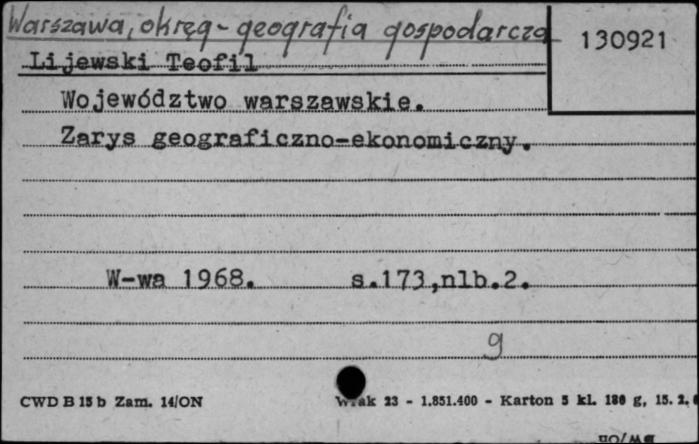 Warszawa, okręg - geografia gospodarcza
130921
Lijewski Teofil
Województwo warszawskie.
Zarys geograficzno-ekonomiczny.
W-wa 1968. s.173,nlb.2.
g
CWD B 15 b Zam. 14/ON
23 - 1.851.400 - Karton 5 kl. 180 g, 15. 2.